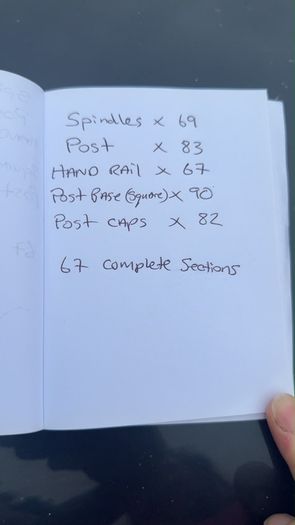 Spindles x 69
Post x 83
HAND RAil x 67
Post Base (square) x 90
Post caps x 82
67 complete Sections